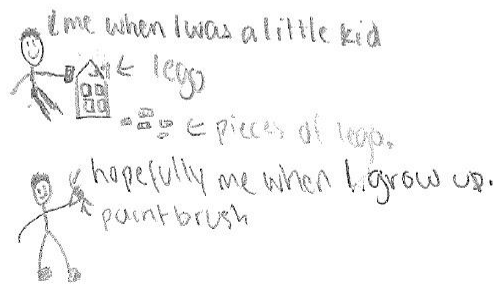 me when I was a little kid
lego
pieces of lego.
hopefully me when I grow up.
paintbrush